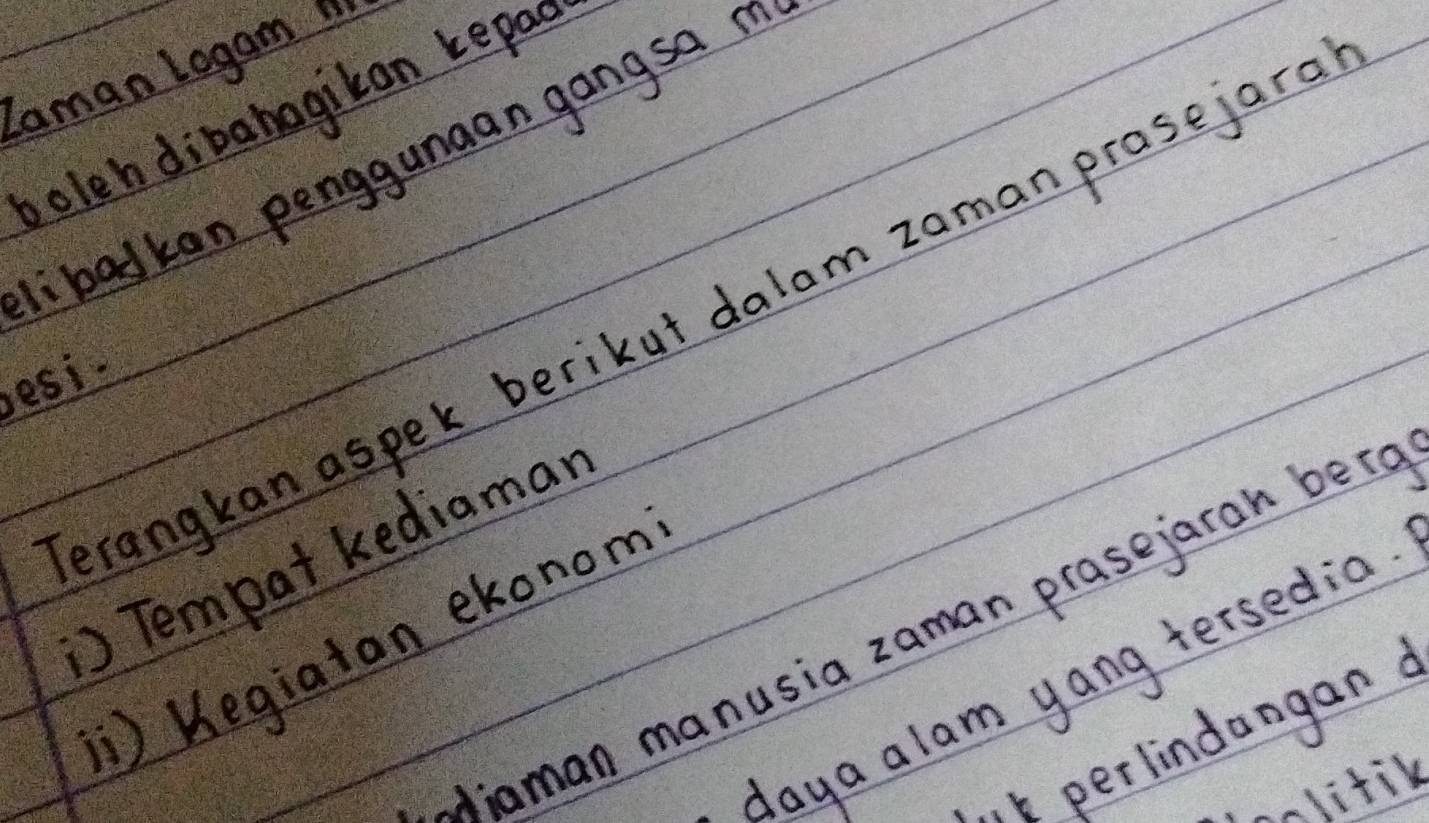 Zaman Logam
boleh dibahagikan
penggunaan gangsa
besi.
Terangkan aspek berikut dalam zaman prasejarah
i) Tempat kediaman
ii) Kegiatan ekonomi
manusia zaman prasejarah
daya alam yang tersedia.
perlindungan